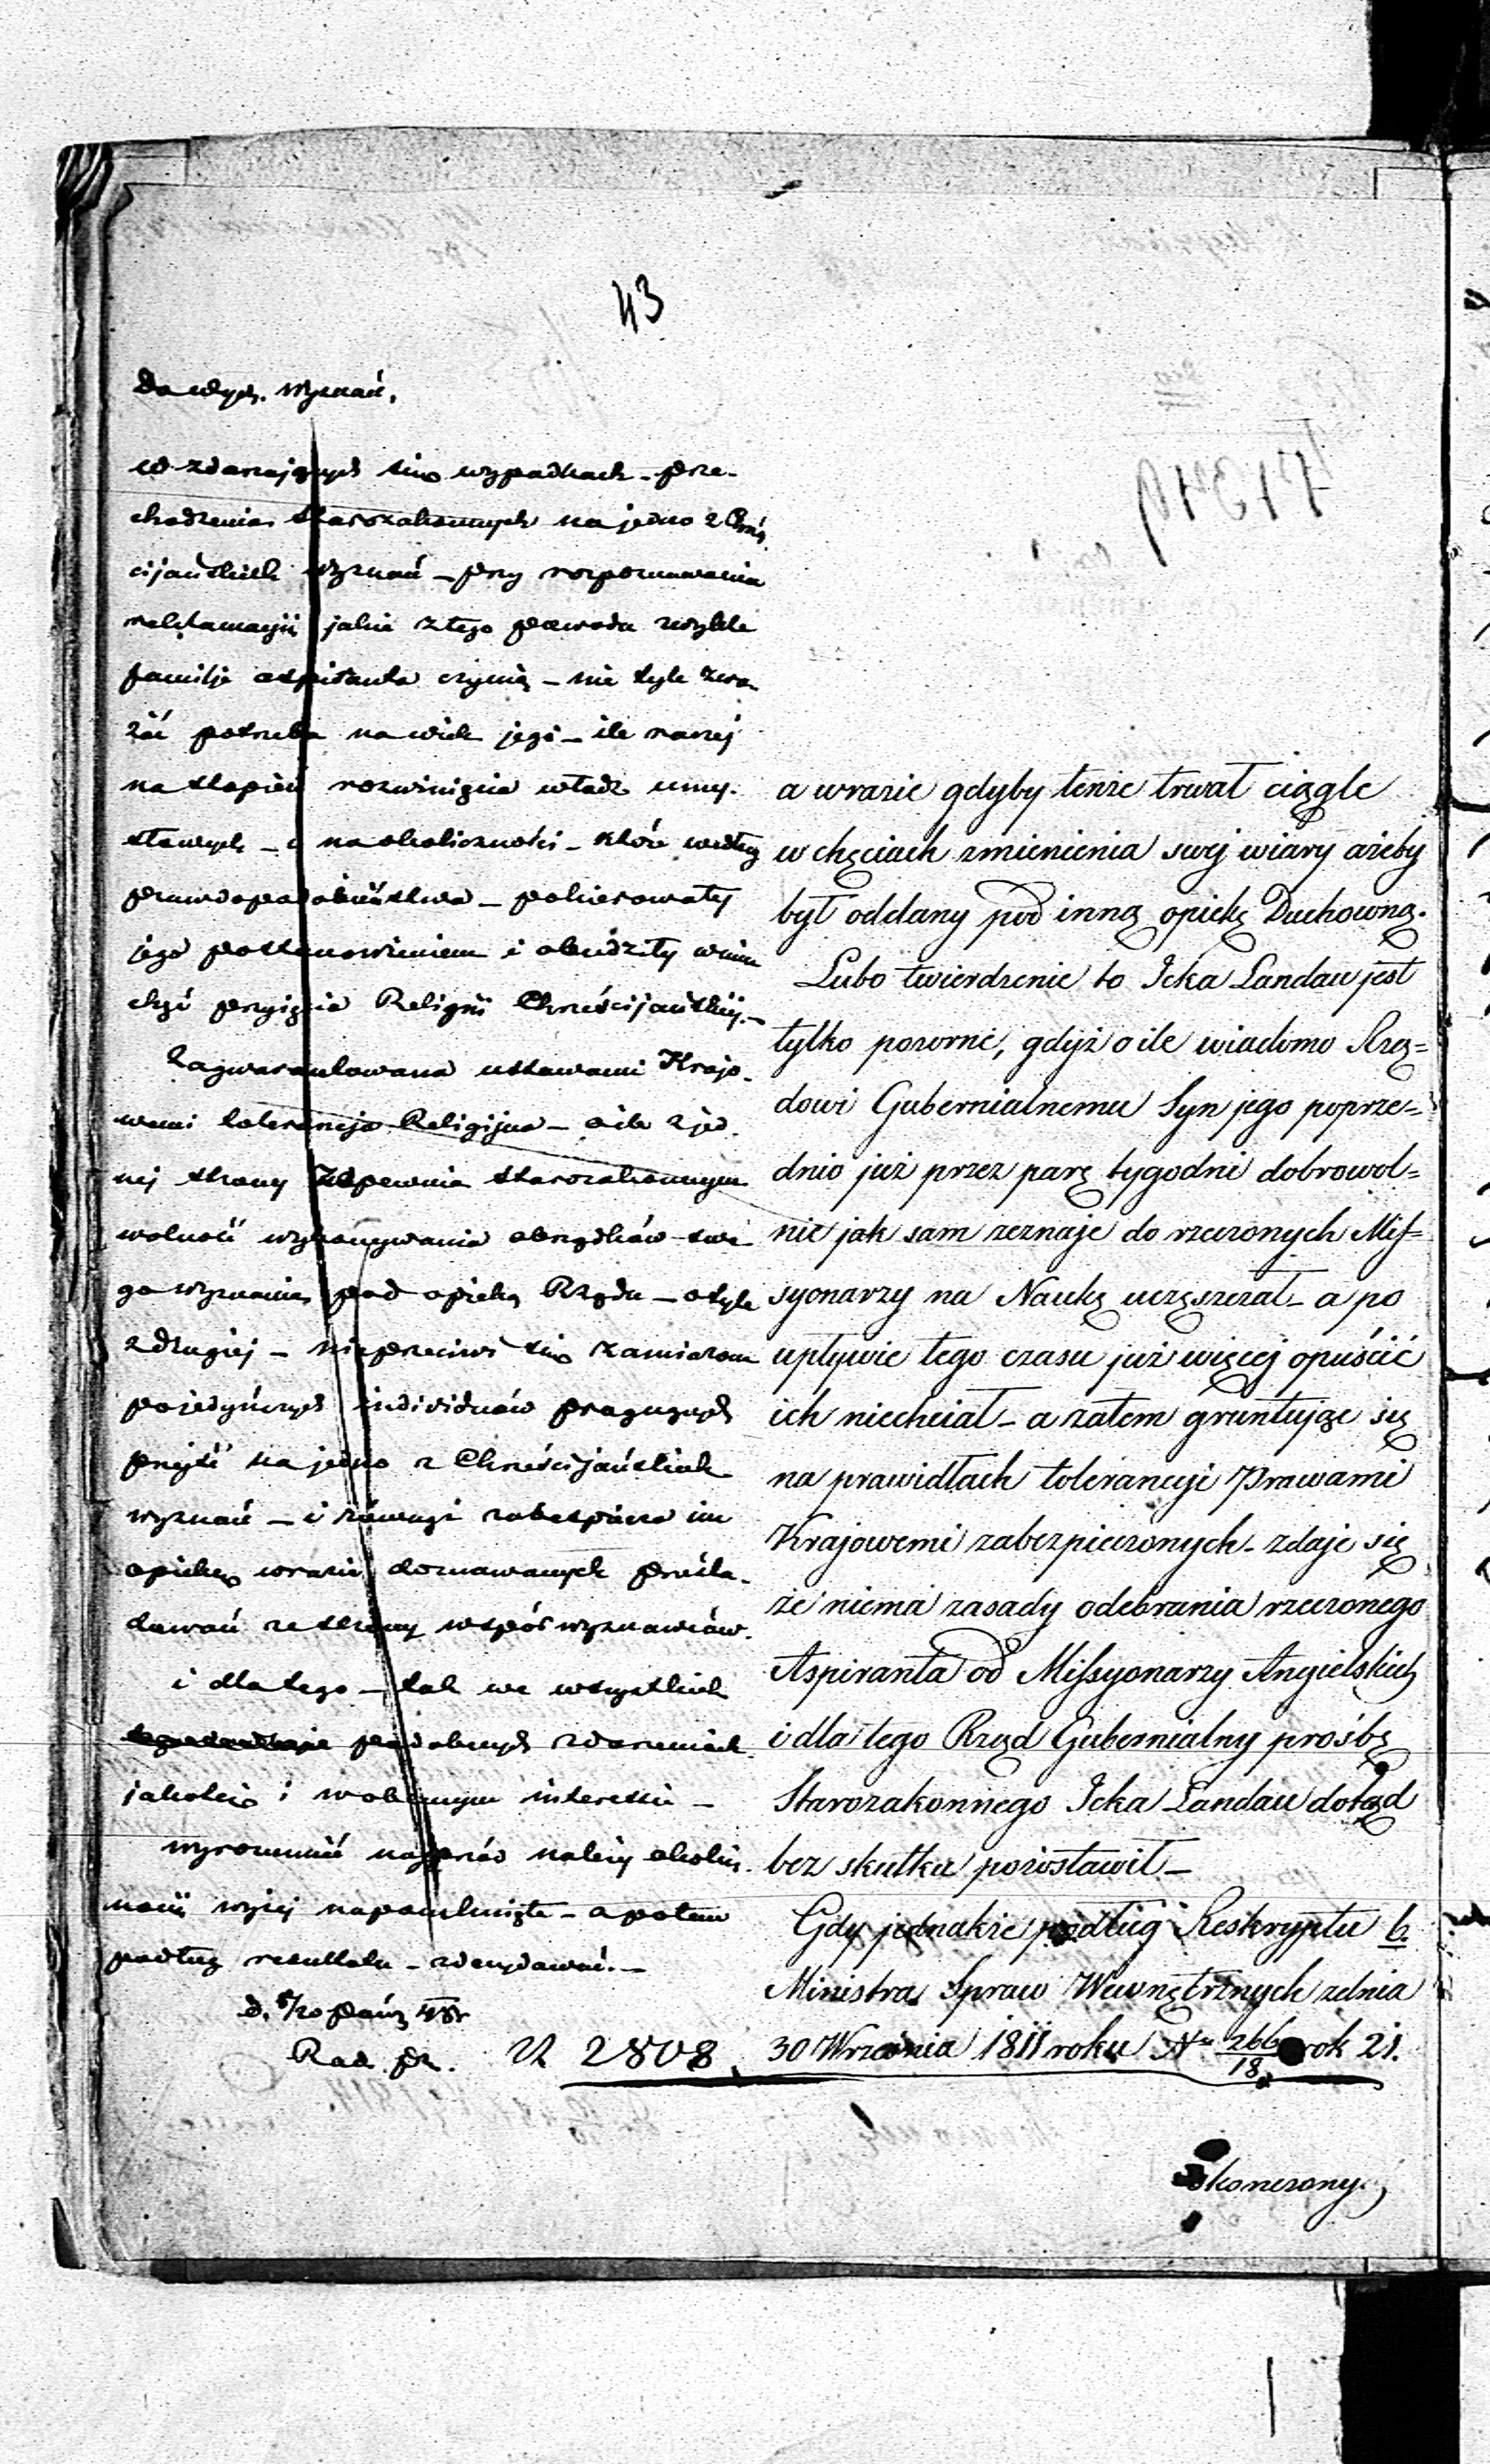 43
Do wyż. Wyznań.
w zdarzających się wypadkach – prze-
chodzenia Starozakonnych na jedno z Chrze-
ścijańskich wyznań – przy rozpoznawaniu
reklamacyji jakie z tego powodu zwykle
familje aspiranta czynią – nie tyle zwa-
żać potrzeba na wiek jego – ile raczej
na stopień rozwinięcia władz umy-
słowych – i na okoliczności – które według
prawdopodobieństwa – pokierowały
jego postanowieniem i obudziły w nim
chęć przyjęcia Religii Chrześcijańskiej. –
Zagwarantowana ustawami Krajo-
wemi tolerancja Religijna – o ile z jed-
nej strony zapewnia starozakonnym
wolność wykonywania obrządków swe-
go wyznania pod opieką Rządu – o tyle
z drugiej – nieprzeciwi się zamiarom
pojedyńczych individuów pragnących
przejść na jedno z Chrześcijańskich
wyznań – i
opiekę w razie doznawanych prześla-
dowań ze strony współwyznawców.
i dla tego – tak we wszystkich
podobnych zdarzeniach
jakoteż i w obecnym interesie –
wyrozumieć najprzód należy okolicz-
ności wyżej napomknięte – a potem
podług rezultatu – zdecydować. –
Rad. N 2808.
a w razie gdyby tenże trwał ciągle
w chęciach zmienienia swej wiary ażeby
był oddany pod inną opiekę Duchowną.
Lubo twierdzenie to Icka Landau jest
tylko pozorne, gdyż o ile wiadomo Rzą=
dowi Gubernialnemu Syn jego poprze=
dnio już przez parę tygodni dobrowol=
nie jak sam zeznaje do rzeczonych Mis=
syonarzy na Naukę uczęszczał – a po
upływie tego czasu już więcej opuścić
ich niechciał – a zatem gruntując się
na prawidłach tolerancyi Prawami
Krajowemi zabezpieczonych – zdaje się
że niema zasady odebrania rzeczonego
Aspiranta od Missyonarzy Angielskich
i dla tego Rząd Gubernialny prośbę
Starozakonnego Icka Landau dotąd
bez skutku pozostawił –
Gdy jednakże podług Reskryptu b.
Ministra Spraw Wewnętrznych z dnia
30 Września 1811 roku No 266/18 rok 21.
skończony